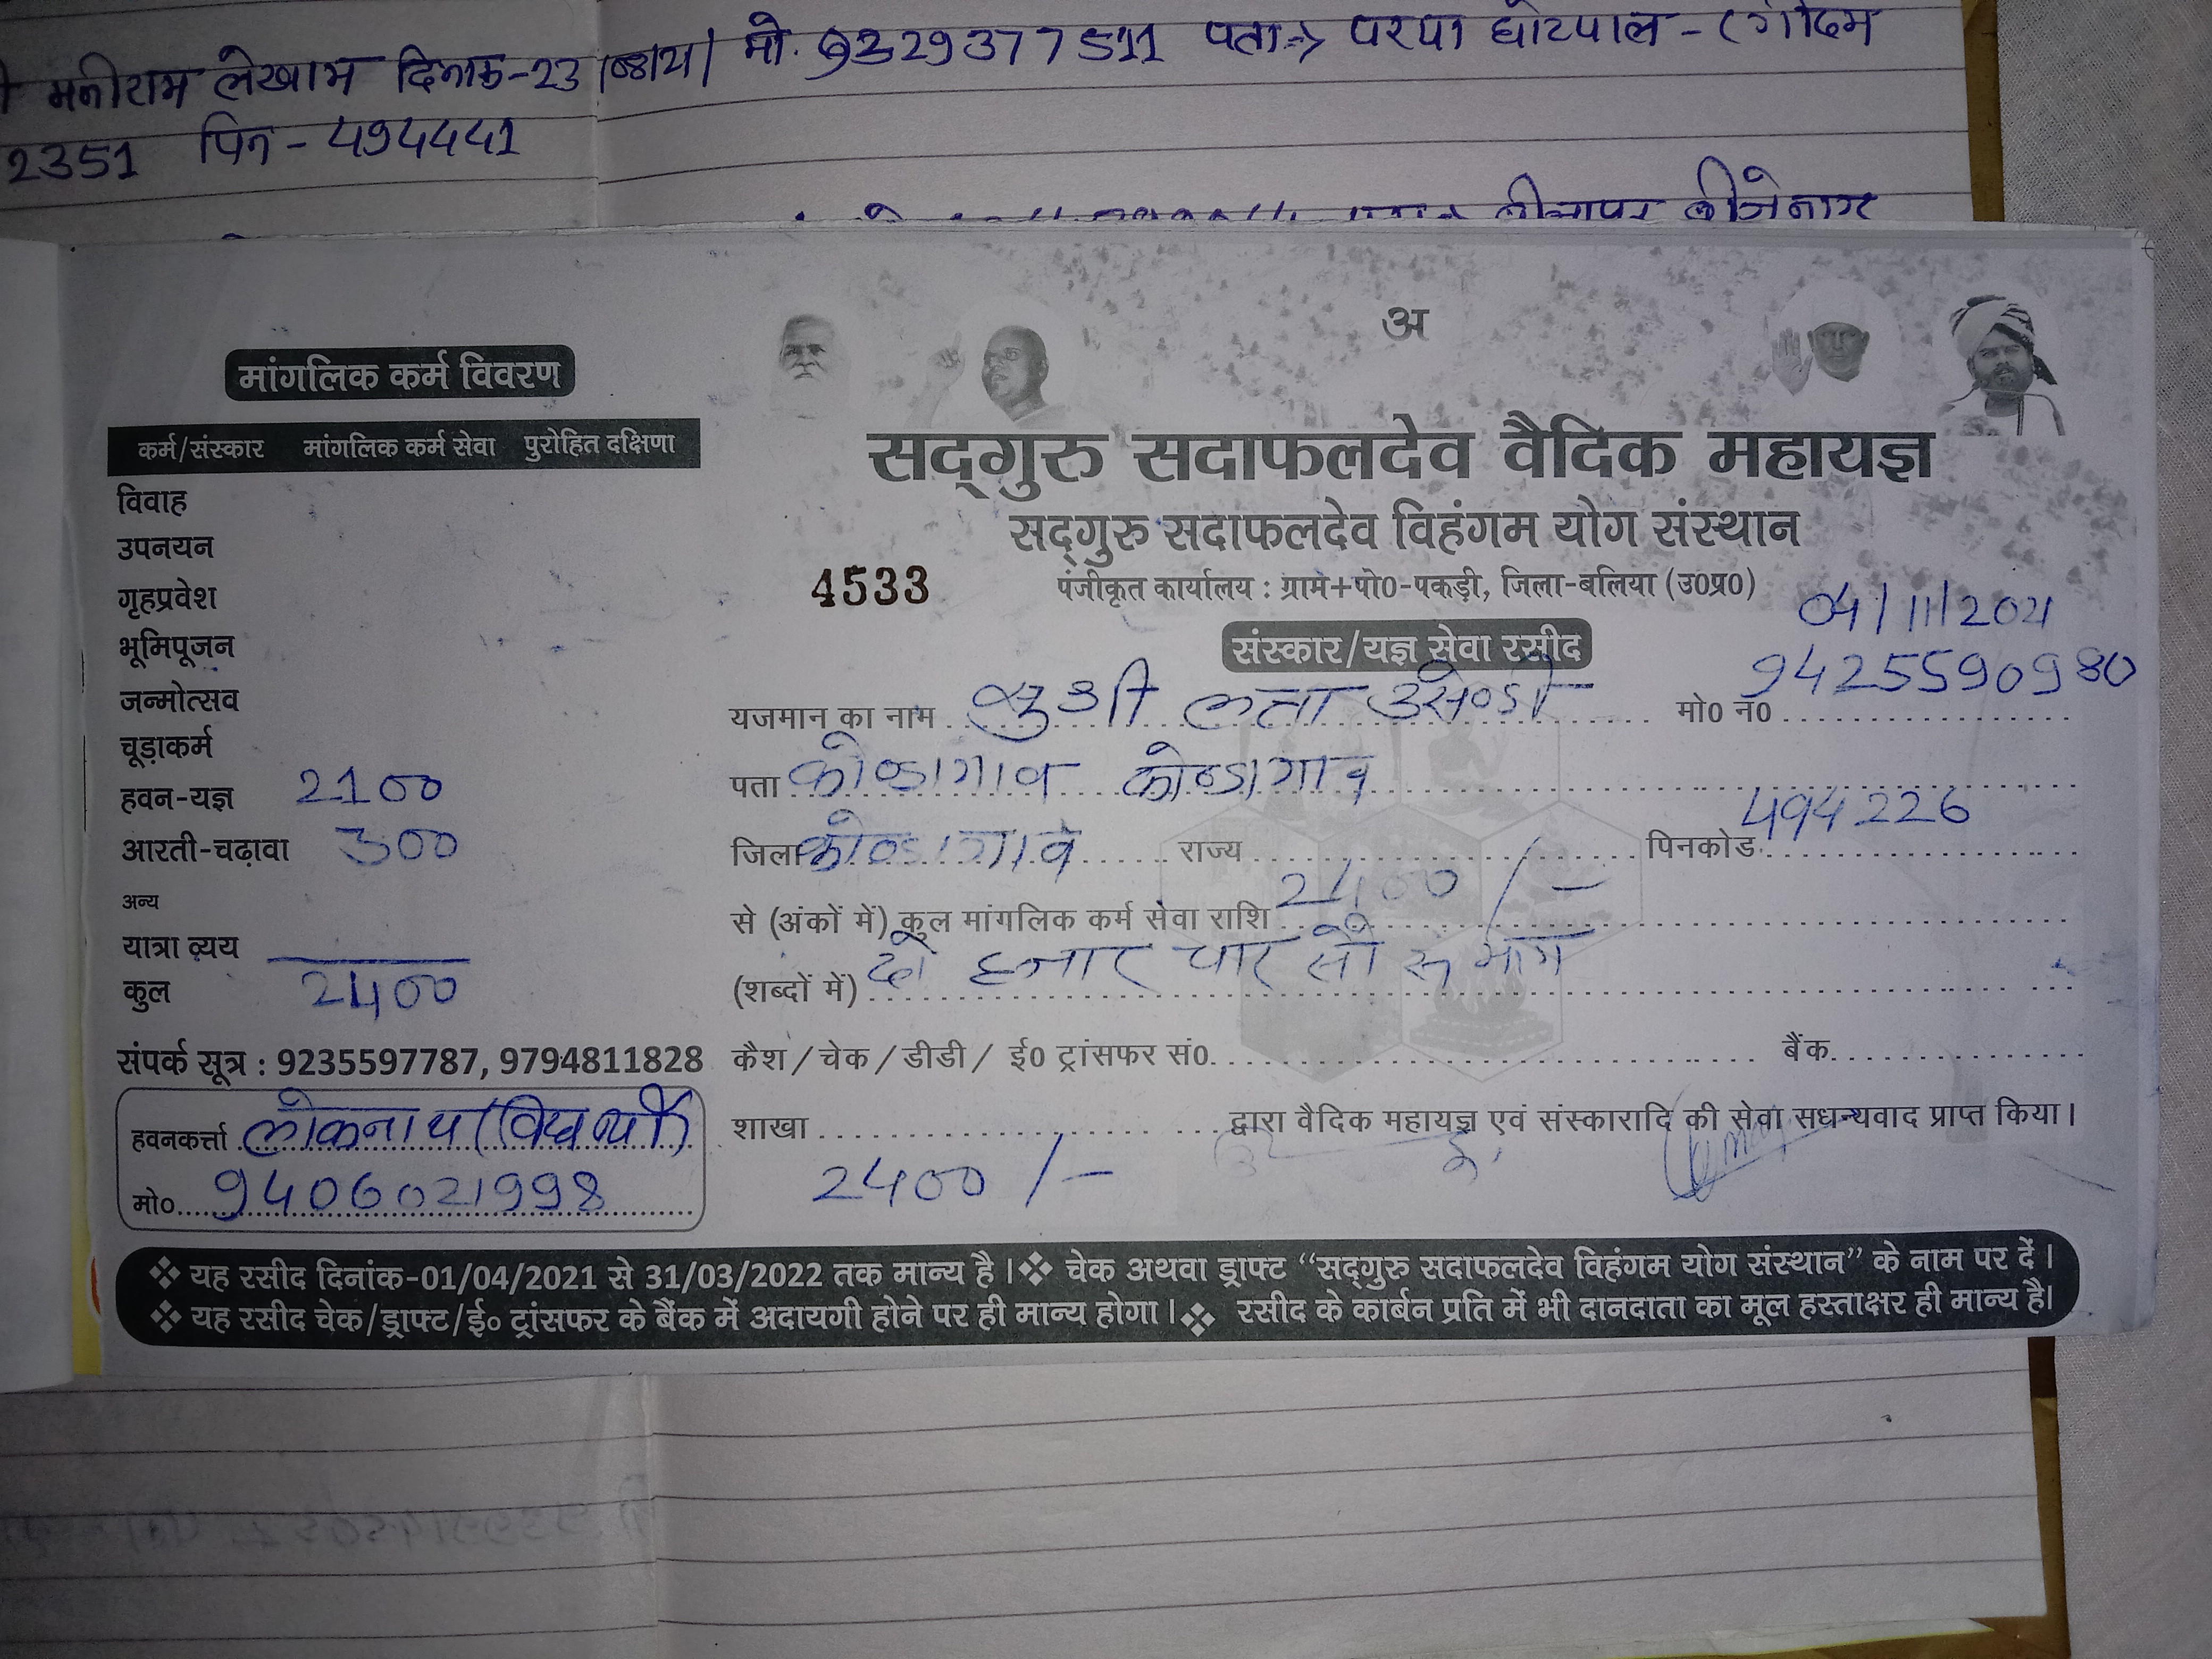 मनीराम लेखाम दिनांक-23 मो. 9329377511 पता→ परपा घोटपाल-(गीदम
2351 पिन-494441
अ
मांगलिक कर्म विवरण
कर्म/संस्कार मांगलिक कर्म सेवा पुरोहित दक्षिणा
विवाह
उपनयन
गृहप्रवेश
भूमिपूजन
जन्मोत्सव
चूड़ाकर्म
हवन-यज्ञ 2100
आरती-चढ़ावा 300
अन्य
यात्रा व्यय
कुल 2400
संपर्क सूत्र : 9235597787, 9794811828
हवनकर्त्ता लोकनाथ
मो० 9406021998
सद्गुरु सदाफलदेव वैदिक महायज्ञ
सद्गुरु सदाफलदेव विहंगम योग संस्थान
4533 पंजीकृत कार्यालय : ग्राम+पो0-पकड़ी, जिला-बलिया (उ0प्र0)
04/11/2021
संस्कार/यज्ञ सेवा रसीद
यजमान का नाम सुश्री लता उसेण्डी मो0 न0 9425590980
पता कोण्डागांव कोण्डागांव
जिला कोण्डागांव राज्य पिनकोड 494226
से (अंकों में) कुल मांगलिक कर्म सेवा राशि 2400/-
(शब्दों में) दो हजार चार सौ रू मात्र
कैश/चेक/डीडी/ ई0 ट्रांसफर सं0 बैंक
शाखा द्वारा वैदिक महायज्ञ एवं संस्कारादि की सेवा सधन्यवाद प्राप्त किया।
2400/-
❖ यह रसीद दिनांक-01/04/2021 से 31/03/2022 तक मान्य है।❖ चेक अथवा ड्राफ्ट “सद्गुरु सदाफलदेव विहंगम योग संस्थान” के नाम पर दें।
❖ यह रसीद चेक/ड्राफ्ट/ई० ट्रांसफर के बैंक में अदायगी होने पर ही मान्य होगा।❖ रसीद के कार्बन प्रति में भी दानदाता का मूल हस्ताक्षर ही मान्य है।